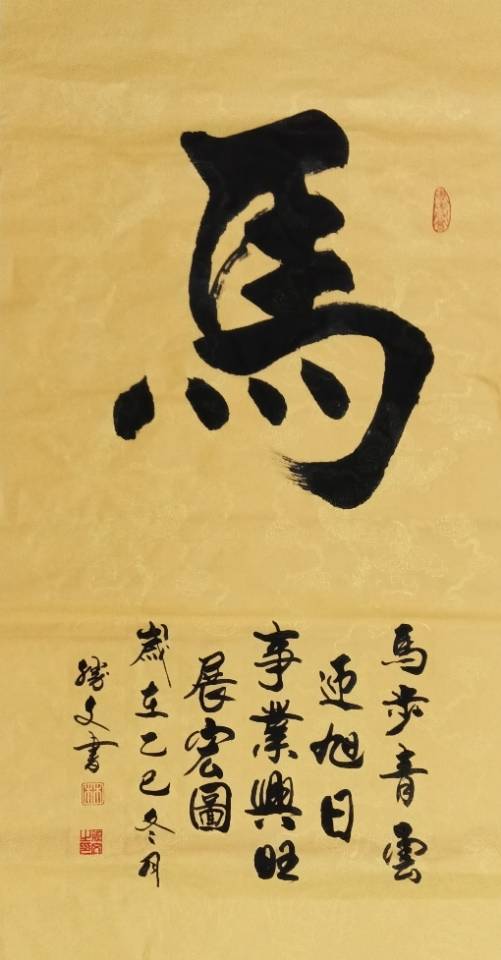 馬
馬步青雲
迎旭日
事業興旺
展宏圖
歲在乙巳冬月
勝文書